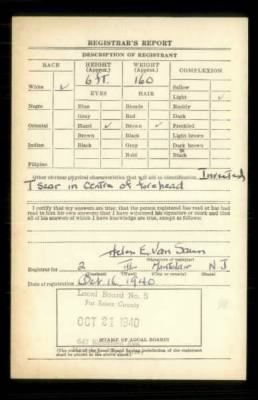 REGISTRAR'S REPORT
DESCRIPTION OF REGISTRANT
RACE HEIGHT (Approx.) WEIGHT (Approx.) COMPLEXION
6 ft. 160
White ✓ Sallow
EYES HAIR Light ✓
Negro Blue Blonde Ruddy
Gray Red Dark
Oriental Hazel ✓ Brown ✓ Freckled
Brown Black Light brown
Indian Black Gray Dark brown
Bald Black
Filipino
Other obvious physical characteristics that will aid in identification Inverted
T scar in Centre of forehead
I certify that my answers are true; that the person registered has read or has had
read to him his own answers; that I have witnessed his signature or mark and that
all of his answers of which I have knowledge are true, except as follows:
Helen E. Van
(Signature of registrar)
Registrar for 2 Montclair N J
Date of registration Oct 16, 1940
Local Board No. 5
For Essex County
OCT 21 1940
STAMP OF LOCAL BOARD
(The stamp of the Local Board having jurisdiction of the registrant
shall be placed in the above space)